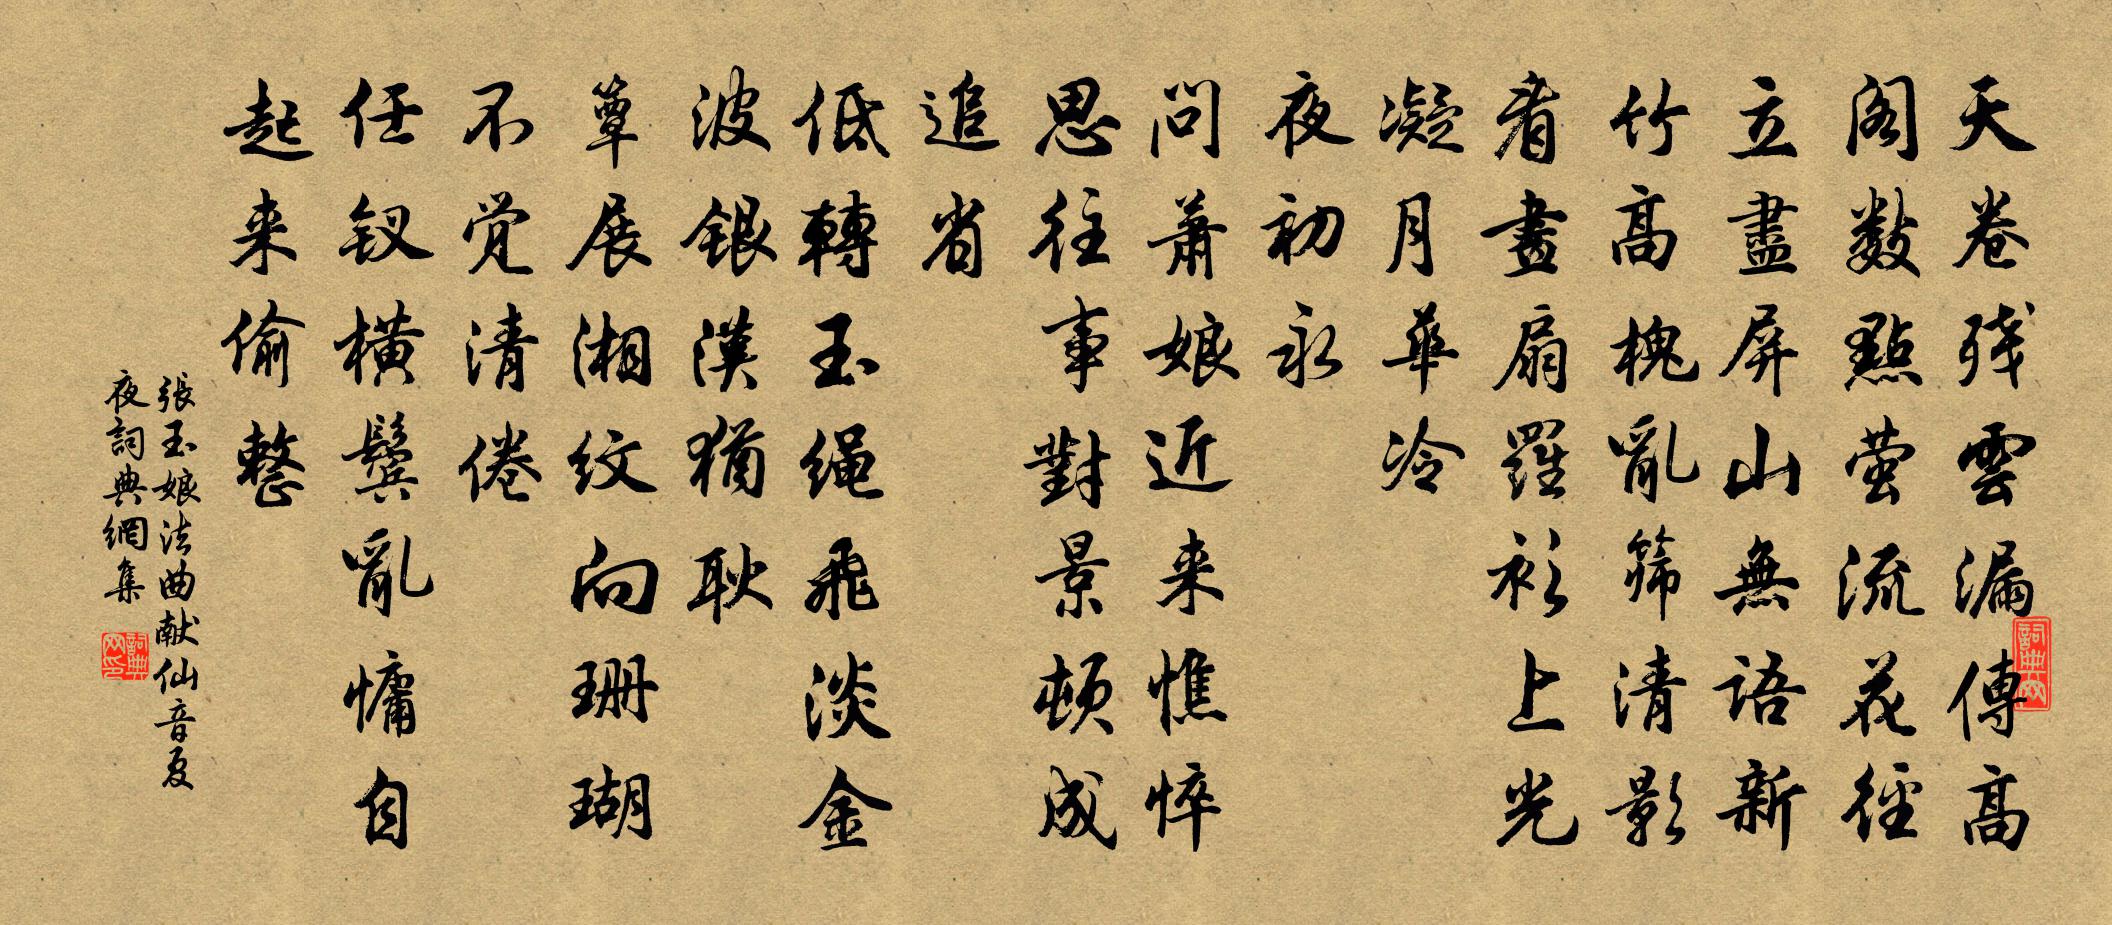 天卷残雲漏傳高
閣數點萤流花徑
立盡屏山無語新
竹高槐亂筛清影
看畫扇羅衫上光
凝月華冷
夜初永
問蕭娘近来憔悴
思往事對景頓成
追省
低轉玉绳飛淡金
波銀漢猶耿
簟展湘纹向珊瑚
不觉清倦
任钗橫鬓亂慵自
起来偷整
張玉娘法曲献仙音夏
夜詞典網集
詞典网
詞典网印